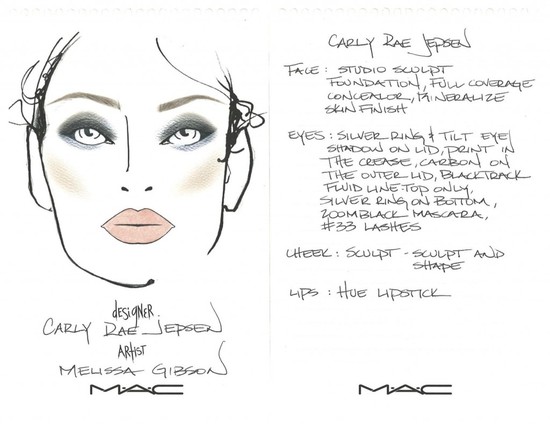 designer
CARLY RAE JEPSEN
ARTIST
MELISSA GIBSON
M·A·C
CARLY RAE JEPSEN
FACE: STUDIO SCULPT
FOUNDATION, FULL COVERAGE
CONCEALOR, MINERALIZE
SKINFINISH
EYES: SILVER RING & TILT EYE
SHADOW ON LID, PRINT IN
THE CREASE, CARBON ON
THE OUTER LID, BLACKTRACK
FLUID LINE TOP ONLY,
SILVER RING ON BOTTOM,
ZOOMBLACK MASCARA,
#33 LASHES
CHEEK: SCULPT - SCULPT AND
SHAPE
LIPS: HUE LIPSTICK
M·A·C